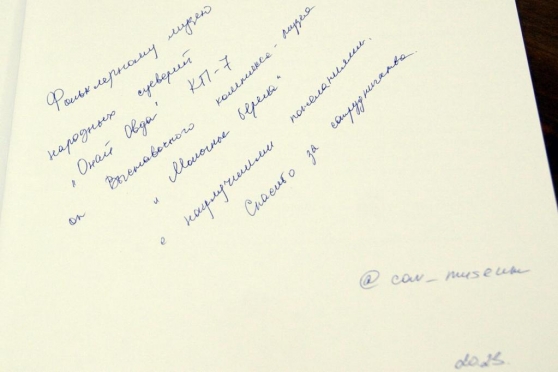 Фольклерному музею
народных суеверий
"Онай Овда" КП-7
от Выставоского комплекса-музея
"Молочные берега"
с наилучшими пожеланиями.
Спасибо за сотрудничество.
@ cow_museum
2023.